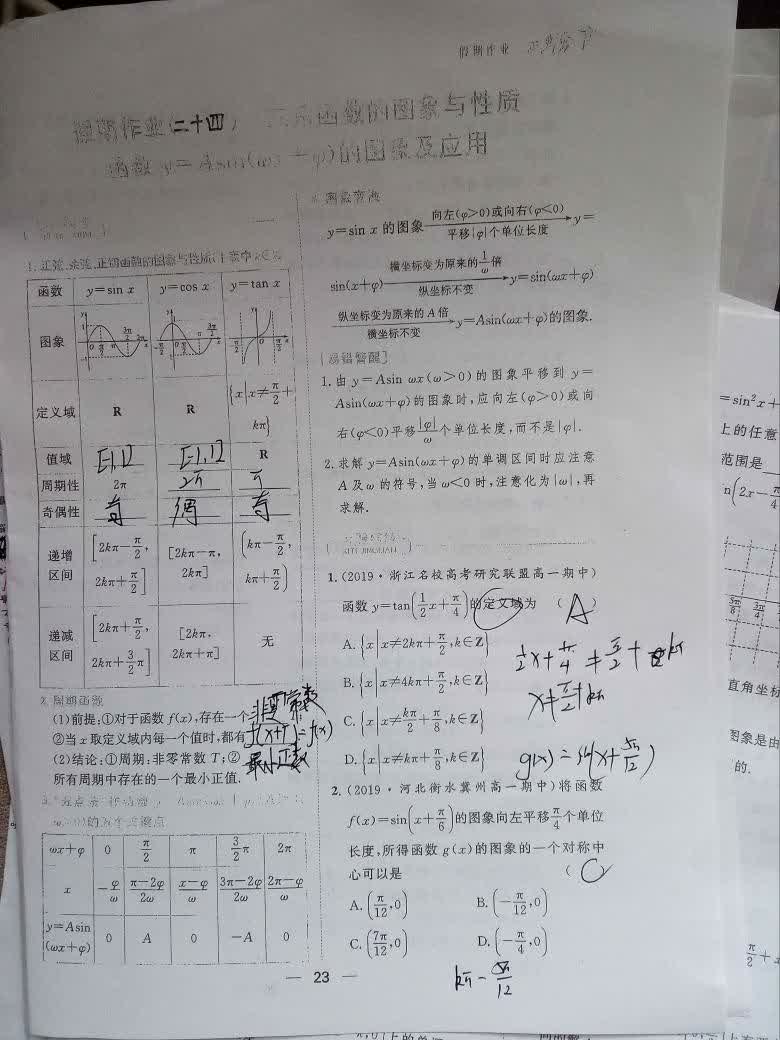 假期作业
假期作业(二十四) 三角函数的图象与性质
函数y=Asin(ωx+φ)的图象及应用
1. 正弦、余弦、正切函数的图象与性质(下表中k∈Z)
函数 y=sin x y=cos x y=tan x
图象
定义域 R R {x|x≠π/2+kπ}
值域 [-1,1] [-1,1] R
周期性 2π 2π π
奇偶性 奇 偶 奇
递增区间 [2kπ-π/2, 2kπ+π/2] [2kπ-π, 2kπ] (kπ-π/2, kπ+π/2)
递减区间 [2kπ+π/2, 2kπ+3/2π] [2kπ, 2kπ+π] 无
2. 周期函数
(1)前提:①对于函数 f(x),存在一个非零常数
②当 x 取定义域内每一个值时,都有f(x+T)=f(x)
(2)结论:①周期:非零常数 T;②最小正数
所有周期中存在的一个最小正值.
ωx+φ 0 π/2 π 3/2π 2π
x -φ/ω (π-2φ)/2ω (x-φ)/ω (3π-2φ)/2ω (2π-φ)/ω
y=Asin(ωx+φ) 0 A 0 -A 0
4. 图象变换
y=sin x 的图象 向左(φ>0)或向右(φ<0) 平移|φ|个单位长度 y=
sin(x+φ) 横坐标变为原来的1/ω倍 纵坐标不变 y=sin(ωx+φ)
纵坐标变为原来的 A 倍 横坐标不变 y=Asin(ωx+φ)的图象.
[易错警醒]
1. 由 y=Asin ωx(ω>0)的图象平移到 y=
Asin(ωx+φ)的图象时,应向左(φ>0)或向
右(φ<0)平移|φ|/ω个单位长度,而不是|φ|.
2. 求解 y=Asin(ωx+φ)的单调区间时应注意
A 及 ω 的符号,当 ω<0 时,注意化为|ω|,再
求解.
1. (2019·浙江名校高考研究联盟高一期中)
函数 y=tan(1/2x+π/4)的定义域为 ( A )
A. {x|x≠2kπ+π/2,k∈Z}
B. {x|x≠4kπ+π/2,k∈Z}
C. {x|x≠kπ/2+π/8,k∈Z}
D. {x|x≠kπ+π/8,k∈Z}
1/2x+π/4≠π/2+kπ
x≠π/2+kπ
g(x)=sin(x+5π/12)
2. (2019·河北衡水冀州高一期中)将函数
f(x)=sin(x+π/6)的图象向左平移π/4个单位
长度,所得函数 g(x)的图象的一个对称中
心可以是 ( C
A. (π/12,0) B. (-π/12,0)
C. (7π/12,0) D. (-π/4,0)
kπ-5π/12
— 23 —
=sin²x+
上的任意
范围是
n(2x-π/4
5π/8 3π/4
直角坐标
图象是由
的.
π/2+